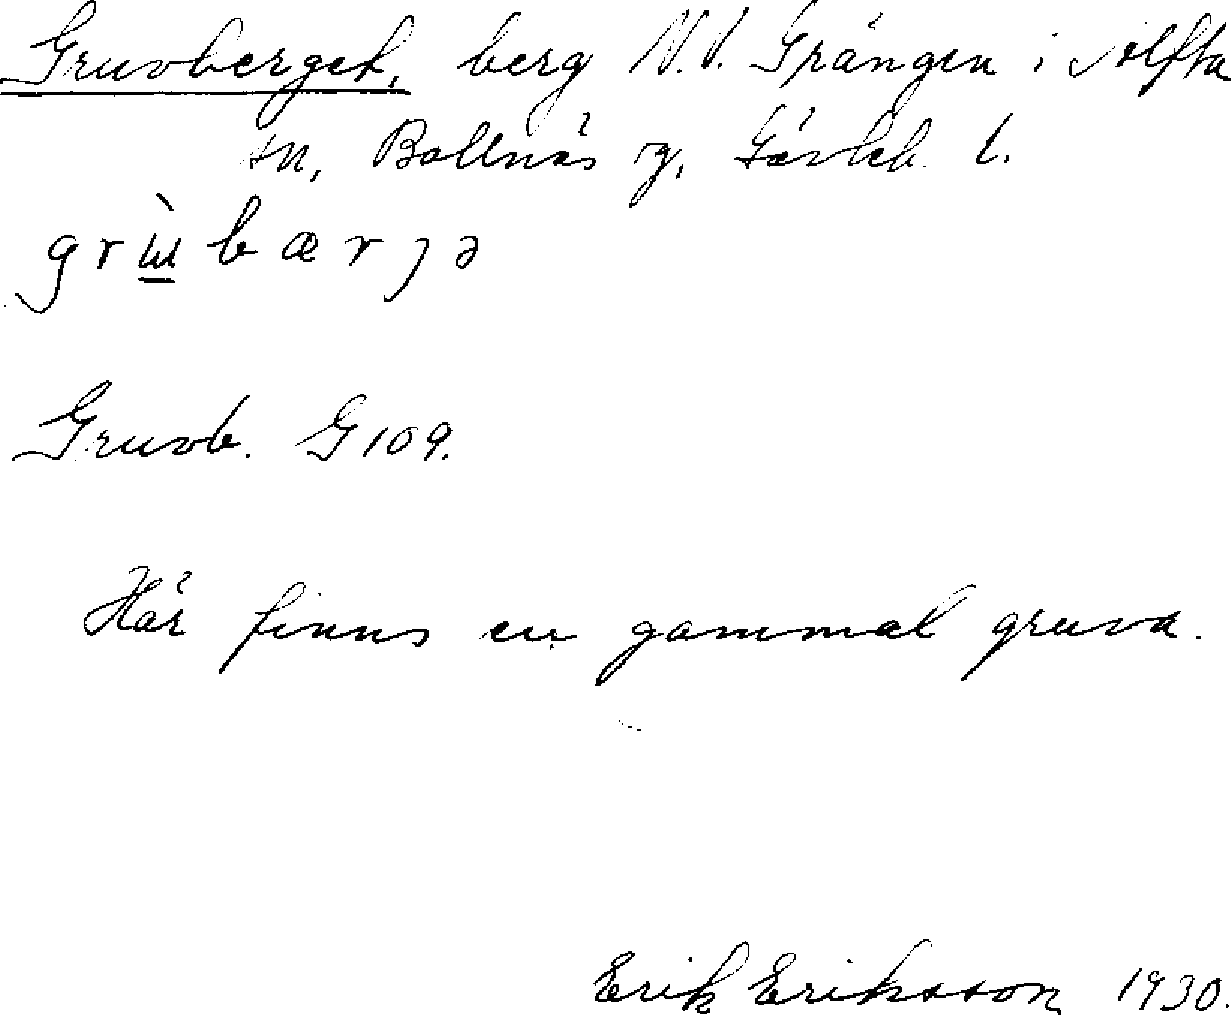 Gruvberget, berg N.V. Grängen i Alfta
sn, Bollnäs tg, Gävleb. l.
grɯ̀bærjə
Gruvb. G 109.
Här finns en gammal gruva.
Erik Eriksson 1930.